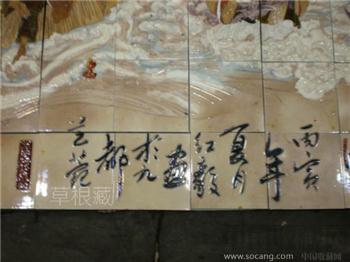 丙寅
年
夏月
红毅
画
於九
都
兰苑
草根藏
www.socang.com 中国收藏网